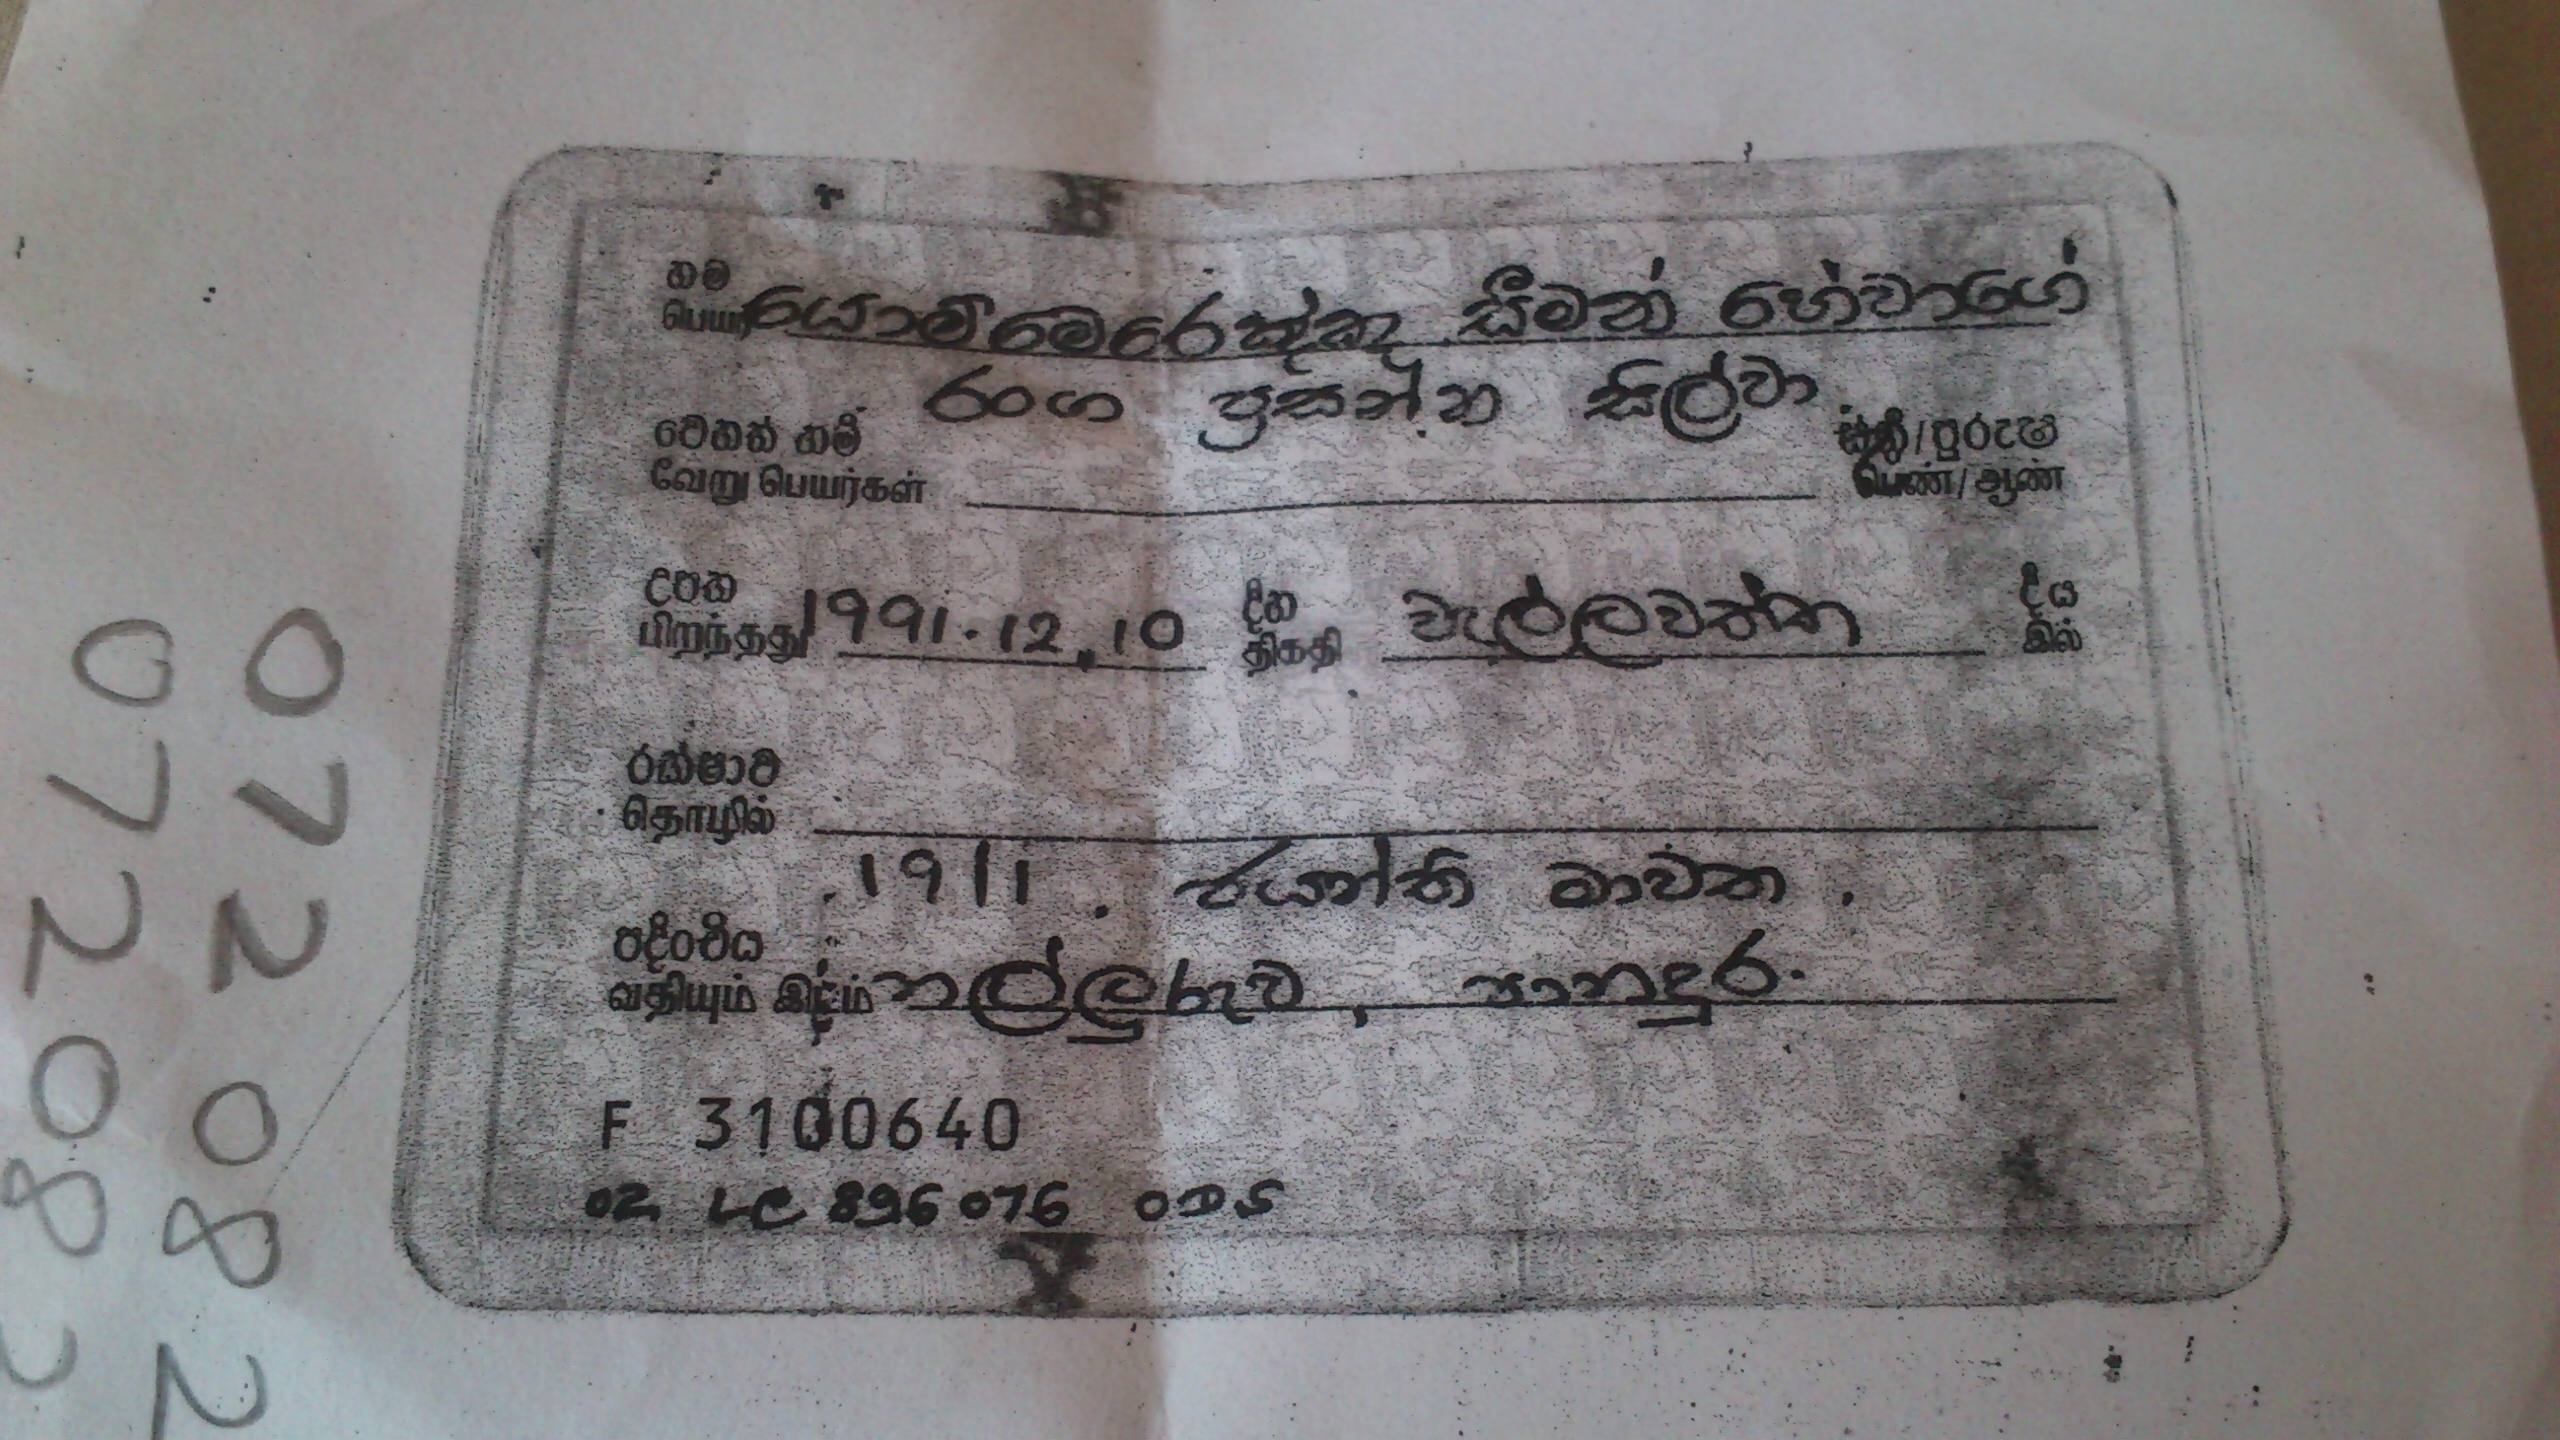 නම
பெயர் යොමිමෙරෙක්කු සීමන් හේවාගේ
රංග ප්‍රසන්න සිල්වා
වෙනත් නම්
வேறு பெயர்கள்
ස්ත්‍රී/පුරුෂ
பெண்/ஆண்
උපත
பிறந்தது 1991.12.10
දින
திகதி වැල්ලවත්ත
දීය
இல்
රක්ෂාව
தொழில்
19/1. ජයන්ති මාවත.
පදිංචිය
வதியும் இடம் නල්ලුරුව, පානදුර.
F 3100640
02 LC 896076 ODS
072 08 2
072 08